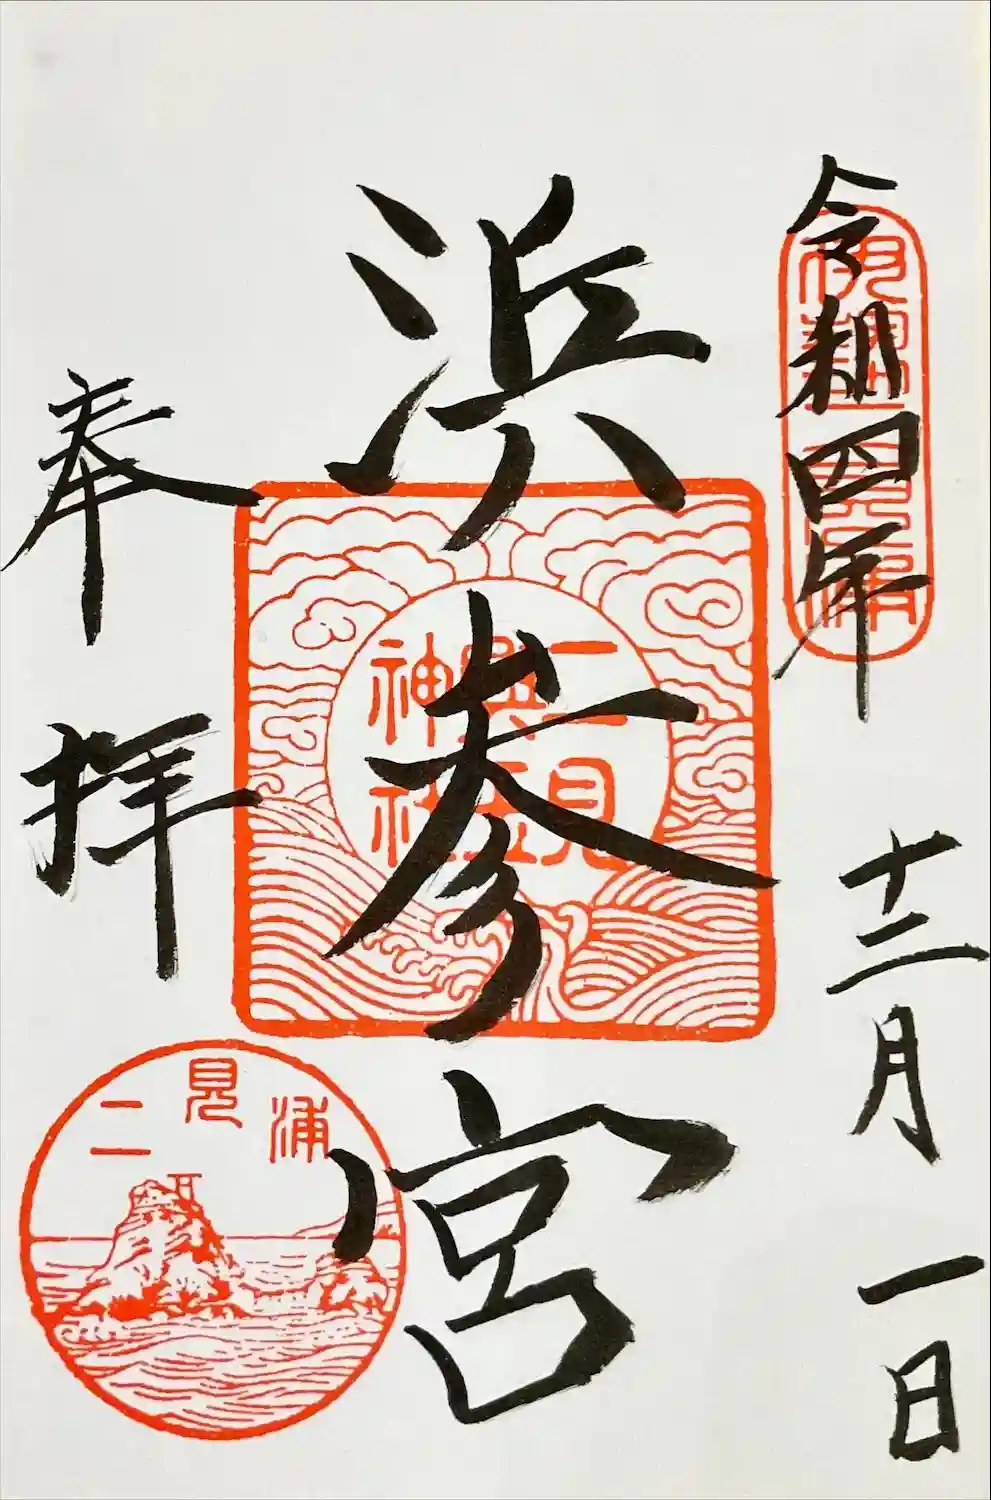 令和四年 十二月 一日
伊勢二見浦
浜参宮
二見興玉神社
奉拝
二見浦